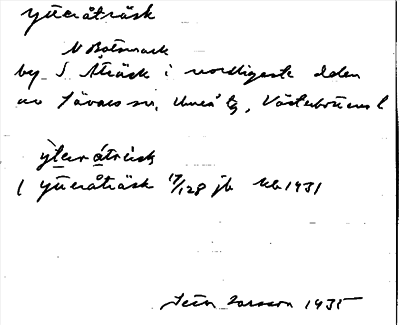 Ytteråträsk
N Botsmark
by S. Åträsk i nordligaste delen
av Sävars sn, Umeå tg, Västerbottens l
ẏterå̱träsk
1 Ytteråträsk 17/128 jb 1931
Larsson 1935